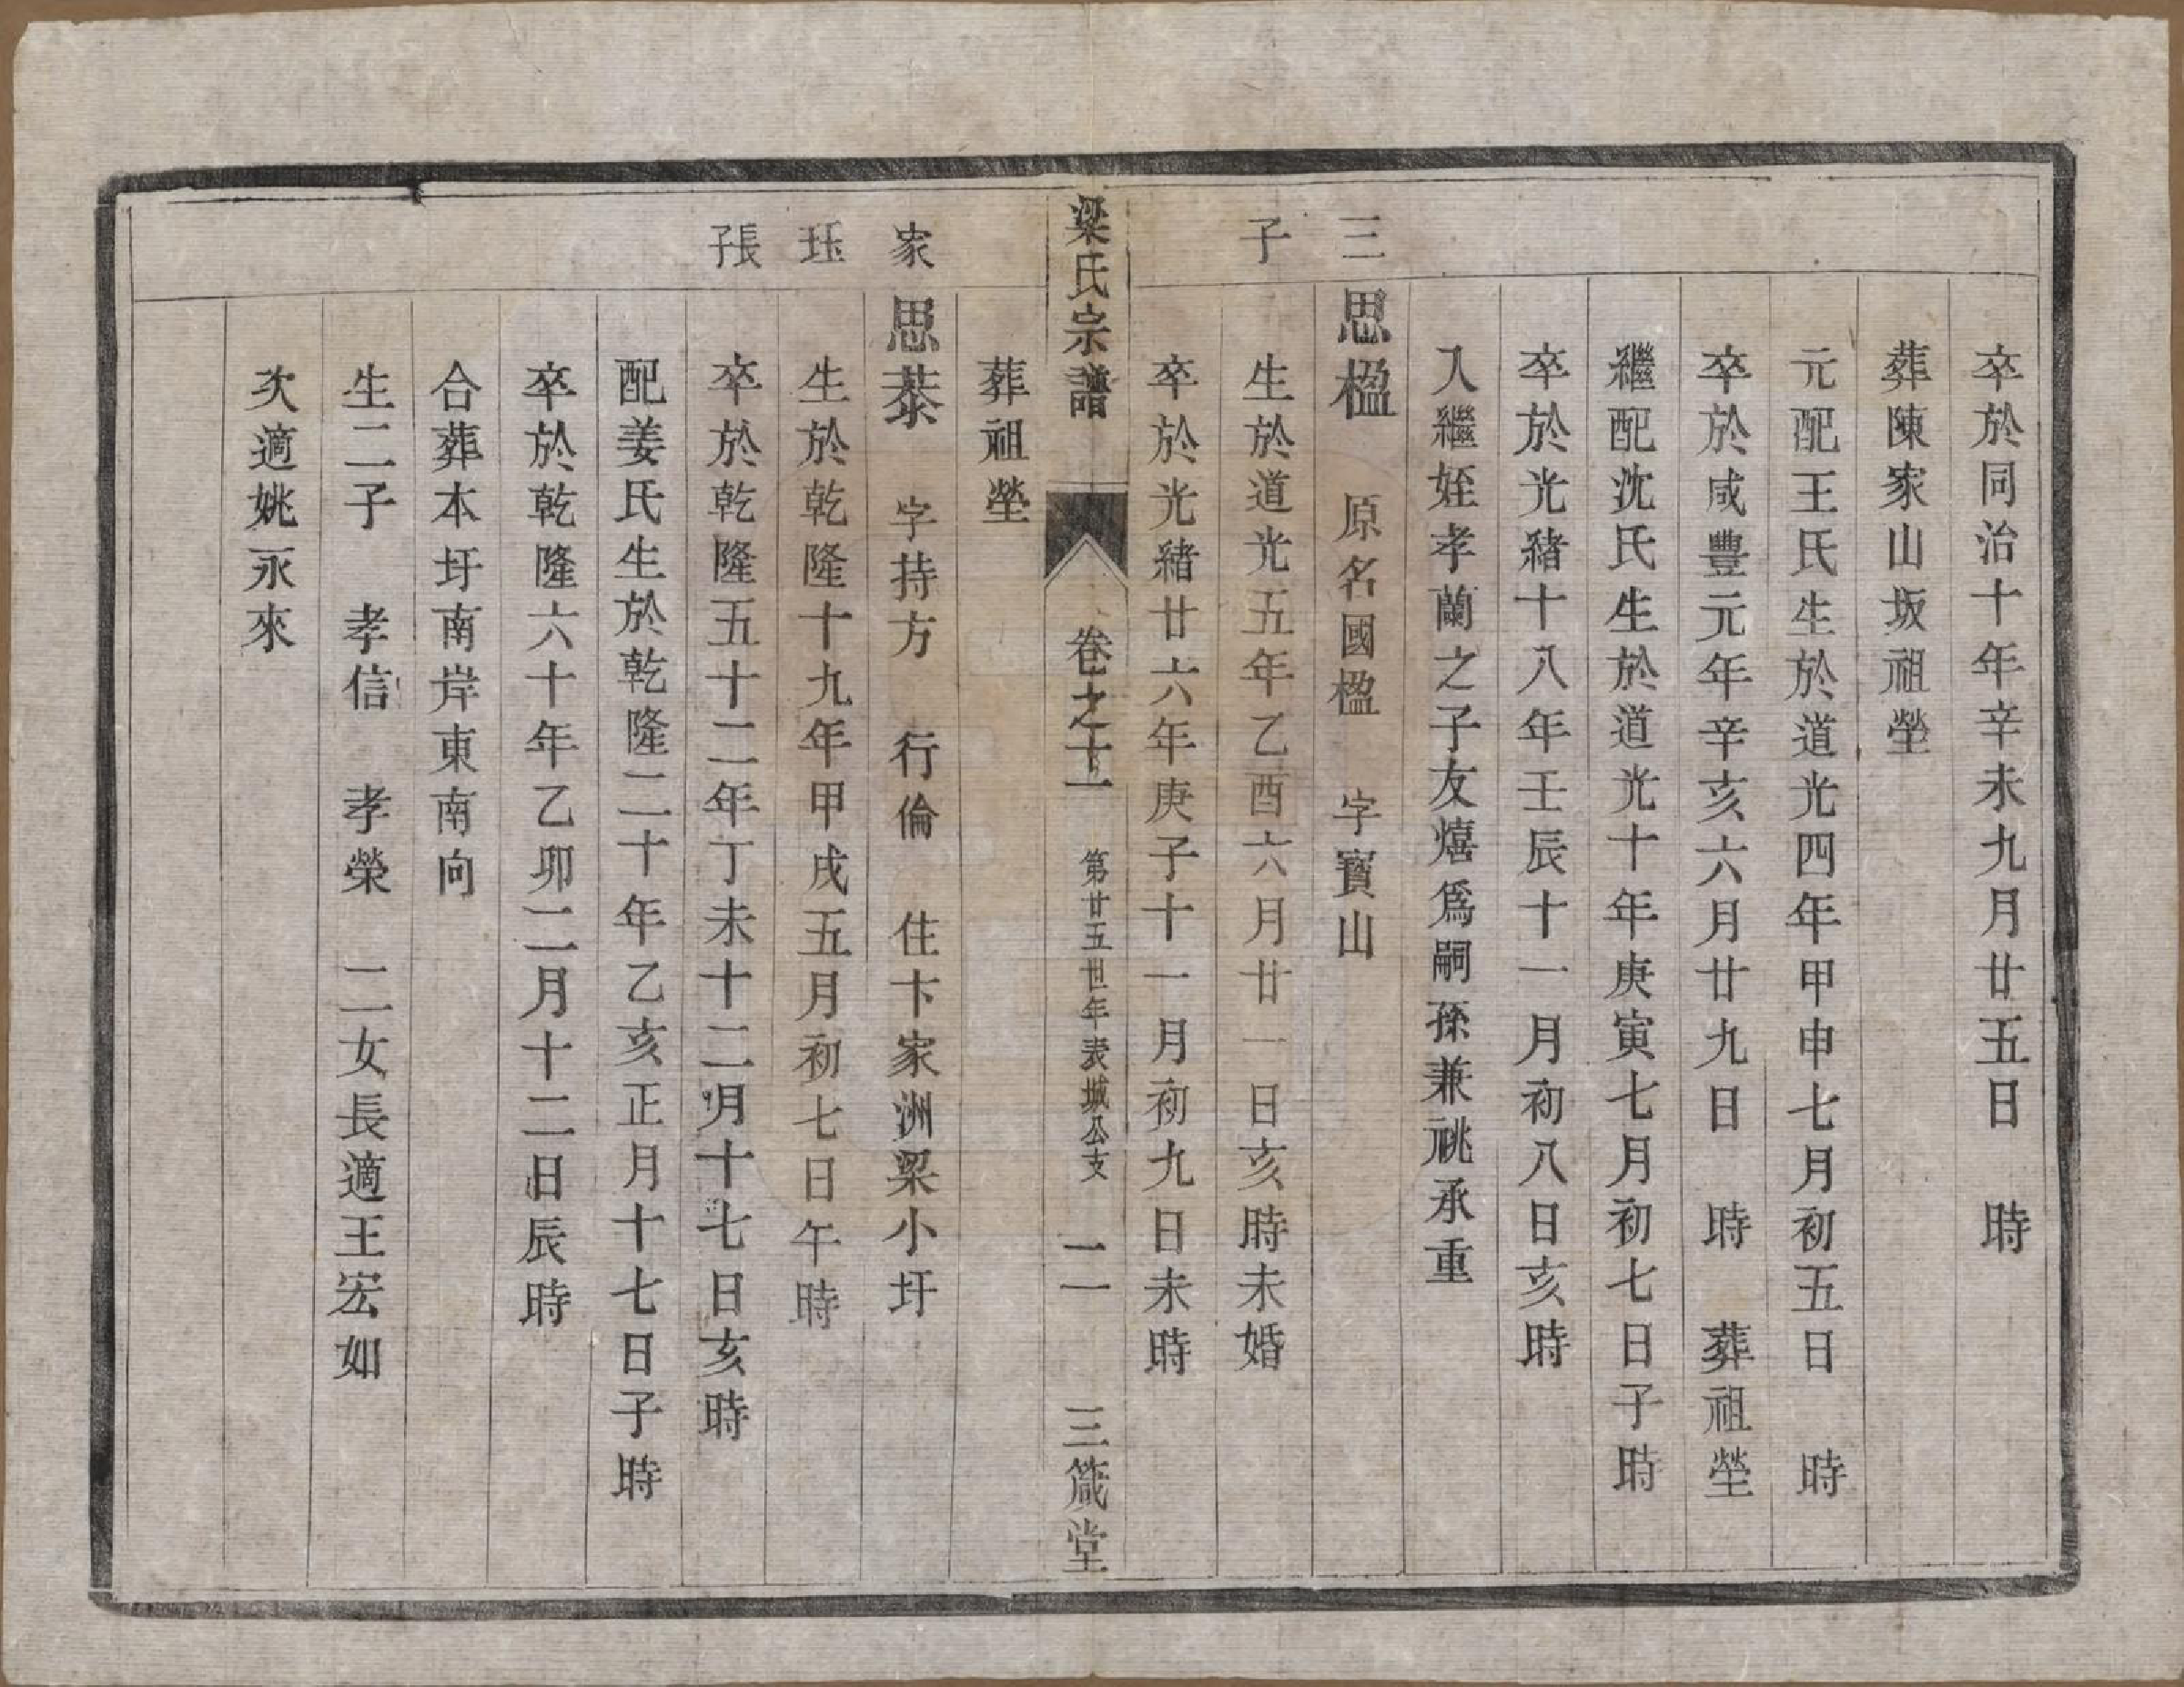 卒於同治十年辛未九月廿五日　時
葬陳家山坂祖塋
元配王氏生於道光四年甲申七月初五日　時
卒於咸豐元年辛亥六月廿九日　時　葬祖塋
繼配沈氏生於道光十年庚寅七月初七日子時
卒於光緒十八年壬辰十一月初八日亥時
入繼姪孝蘭之子友熺爲嗣孫兼祧承重
三　思楹　原名國楹　字寶山
子　生於道光五年乙酉六月廿一日亥時未婚
卒於光緒廿六年庚子十一月初九日未時
葬祖塋
梁氏宗譜　卷之十一　第廿五世年表城公支　二　三箴堂
家　思恭　字持方　行倫　住卞家洲梁小圩
珏　生於乾隆十九年甲戌五月初七日午時
長子　卒於乾隆五十二年丁未十二月十七日亥時
配姜氏生於乾隆二十年乙亥正月十七日子時
卒於乾隆六十年乙卯二月十二日辰時
合葬本圩南岸東南向
生二子　孝信　孝榮　二女長適王宏如
次適姚永來